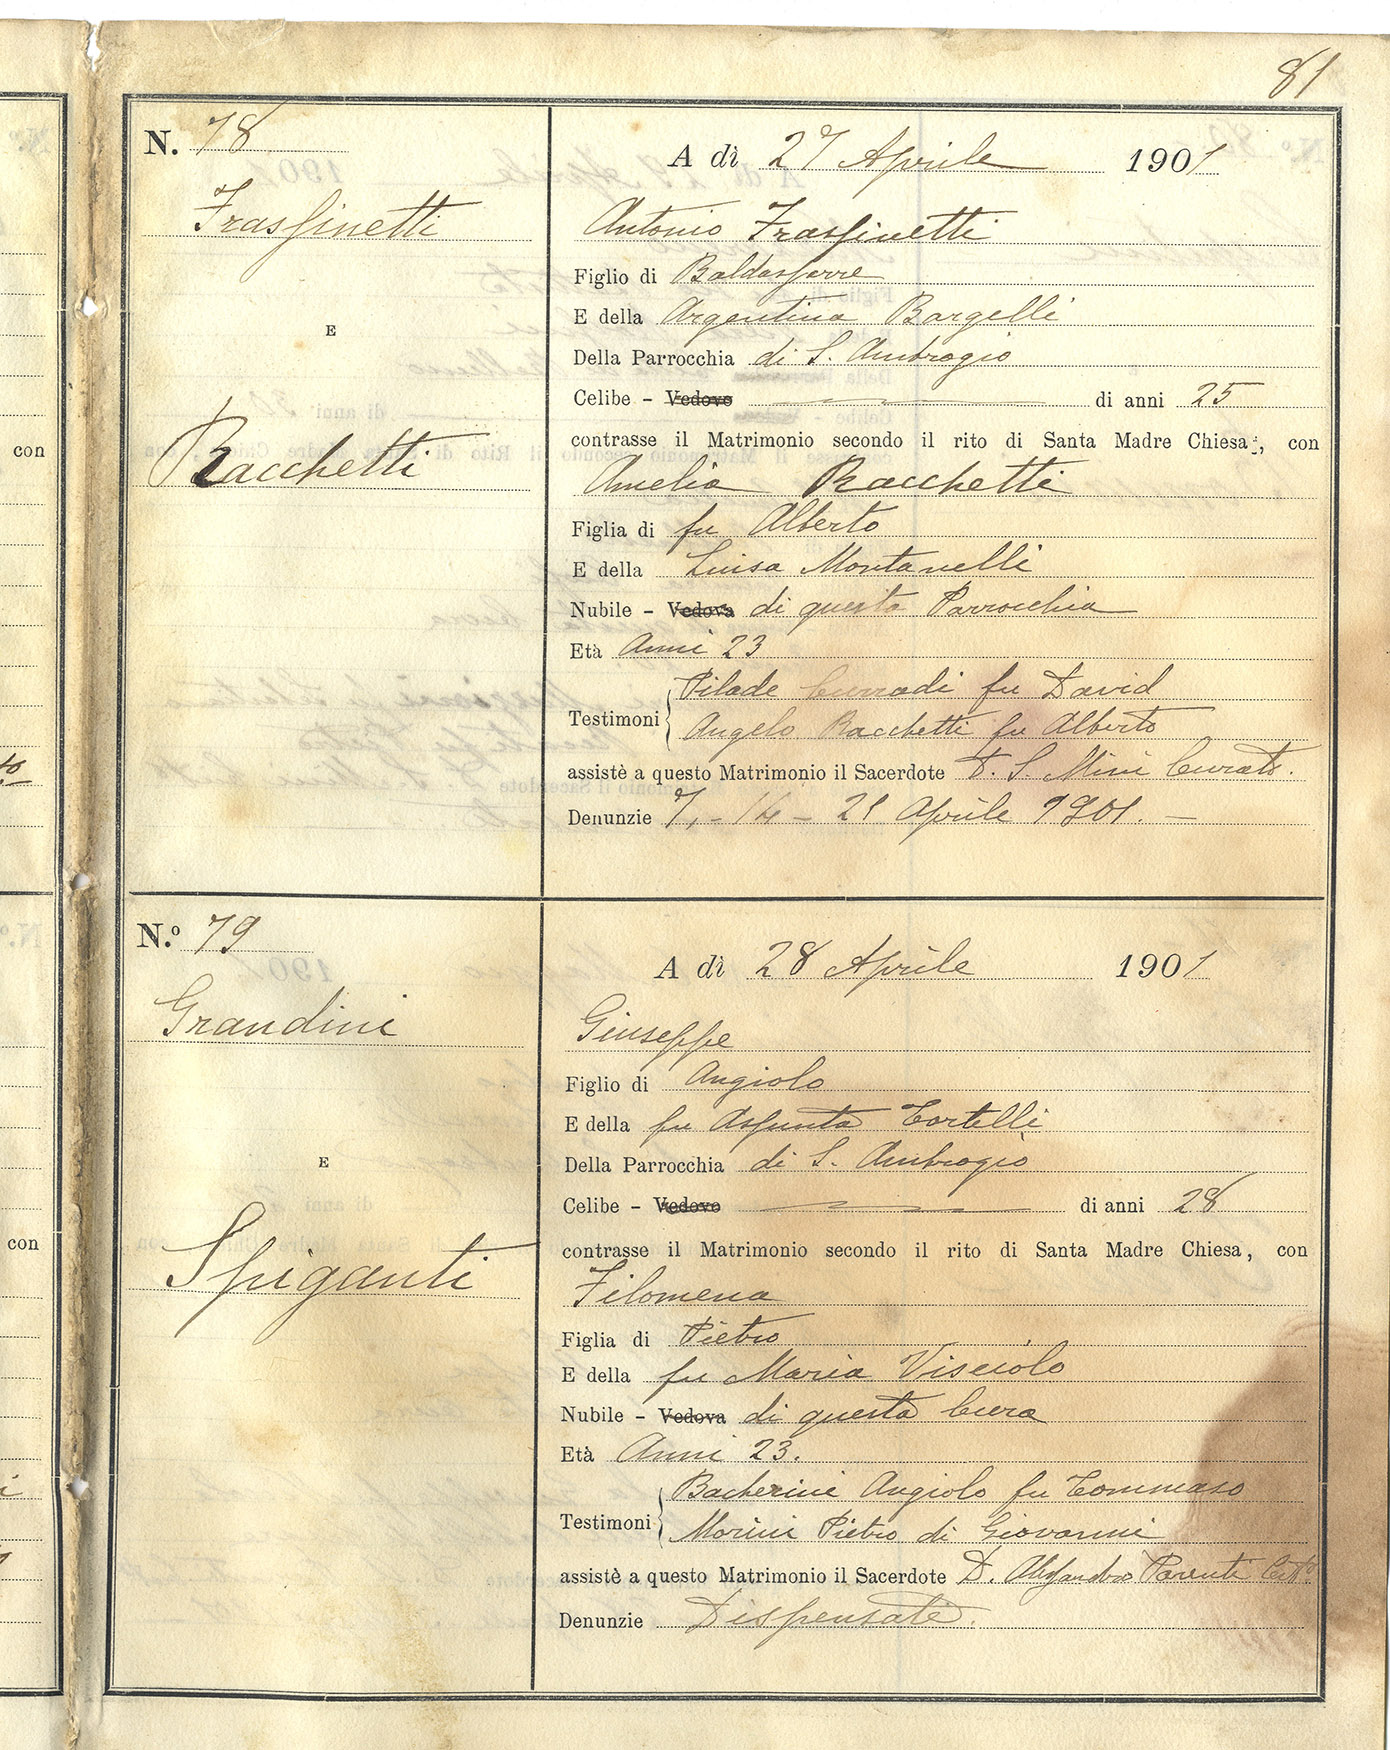 81
N. 78
Frassinetti
E
Racchetti
A dì 27 Aprile 1901
Antonio Frassinetti
Figlio di Baldassarre
E della Argentina Bargelli
Della Parrocchia di S. Ambrogio
Celibe - Vedovo di anni 25
contrasse il Matrimonio secondo il rito di Santa Madre Chiesa, con
Amelia Racchetti
Figlia di fu Alberto
E della Luisa Montanelli
Nubile - Vedova di questa Parrocchia
Età Anni 23
Testimoni { Pilade Corradi fu David
Angelo Racchetti fu Alberto
assistè a questo Matrimonio il Sacerdote D. S. Mini Curato.
Denunzie 7, - 14 - 21 Aprile 1901. -
N.º 79
Grandini
E
Spiganti
A dì 28 Aprile 1901
Giuseppe
Figlio di Angiolo
E della fu Assunta Tortelli
Della Parrocchia di S. Ambrogio
Celibe - Vedovo di anni 28
contrasse il Matrimonio secondo il rito di Santa Madre Chiesa, con
Filomena
Figlia di Pietro
E della fu Maria Visciolo
Nubile - Vedova di questa Cura
Età Anni 23.
Testimoni { Bacherini Angiolo fu Tommaso
Morini Pietro di Giovanni
assistè a questo Matrimonio il Sacerdote D. Alessandro Parenti
Denunzie Dispensate.
con
con